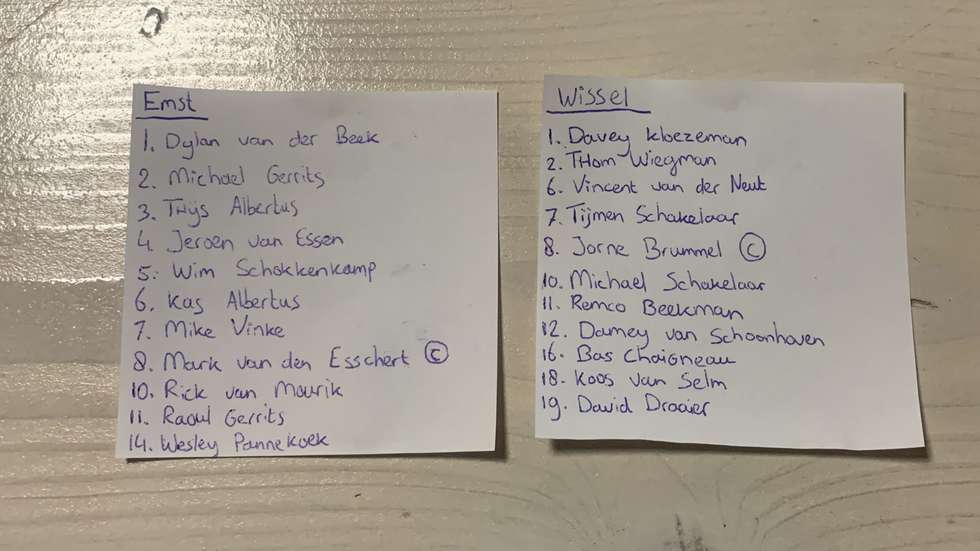 Emst
1. Dylan van der Beek
2. Michael Gerrits
3. THijs Albertus
4. Jeroen van Essen
5. Wim Schokkenkamp
6. Kas Albertus
7. Mike Vinke
8. Mark van den Esschert ©
10. Rick van Mourik
11. Raoul Gerrits
14. Wesley Pannekoek
Wissel
1. Davey Kloezeman
2. THom Wiegman
6. Vincent van der Neut
7. Tijmen Schakelaar
8. Jorne Brummel ©
10. Michael Schakelaar
11. Remco Beekman
12. Damey van Schoonhoven
16. Bas Chaigneau
18. Koos van Selm
19. David Draaier